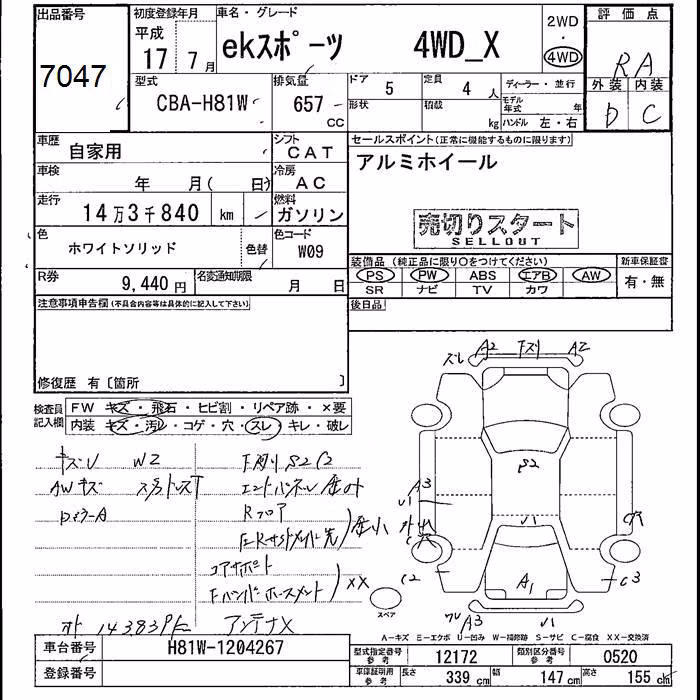 出品番号 初度登録年月 車名・グレード 2WD 評価点
平成
7047 17 7月 ekスポーツ 4WD_X 4WD RA
外装 内装
型式 排気量 ドア 5 定員 4人 ディーラー・並行 D C
CBA-H81W 657 cc 形状 積載 kg モデル年式 年
ハンドル 左・右
車歴 自家用 シフト CAT セールスポイント(正常に機能するものに限ります)
車検 年 月( 日) 冷房 AC アルミホイール
走行 14万3千840 km 燃料 ガソリン 売切りスタート
SELLOUT
色 ホワイトソリッド 色替 色コード W09
装備品(純正品に限り○をつけてください) 新車保証書
R券 9,440円 名変通知期限 月 日 PS PW ABS エアB AW 有・無
SR ナビ TV カワ
注意事項申告欄(不具合内容等は具体的に記入して下さい) 後日品
修復歴 有〔箇所 〕
検査員記入欄 FW キズ・飛石・ヒビ割・リペア跡・×要
内装 キズ・汚レ・コゲ・穴・スレ・キレ・破レ
ズレ A2 Fズリ A2
キズU W2
AWキズ
S2
A3
U1
Rフロア
コアサポート
××
C2 A1 C3
スペア
アンテナX
A3 U1
A-キズ E-エクボ U-凹み W-補修跡 S-サビ C-腐食 XX-交換済
車台番号 H81W-1204267 型式指定番号 参考 12172 類別区分番号 参考 0520
登録番号 車庫証明用 参考 長さ 339cm 幅 147cm 高さ 155cm